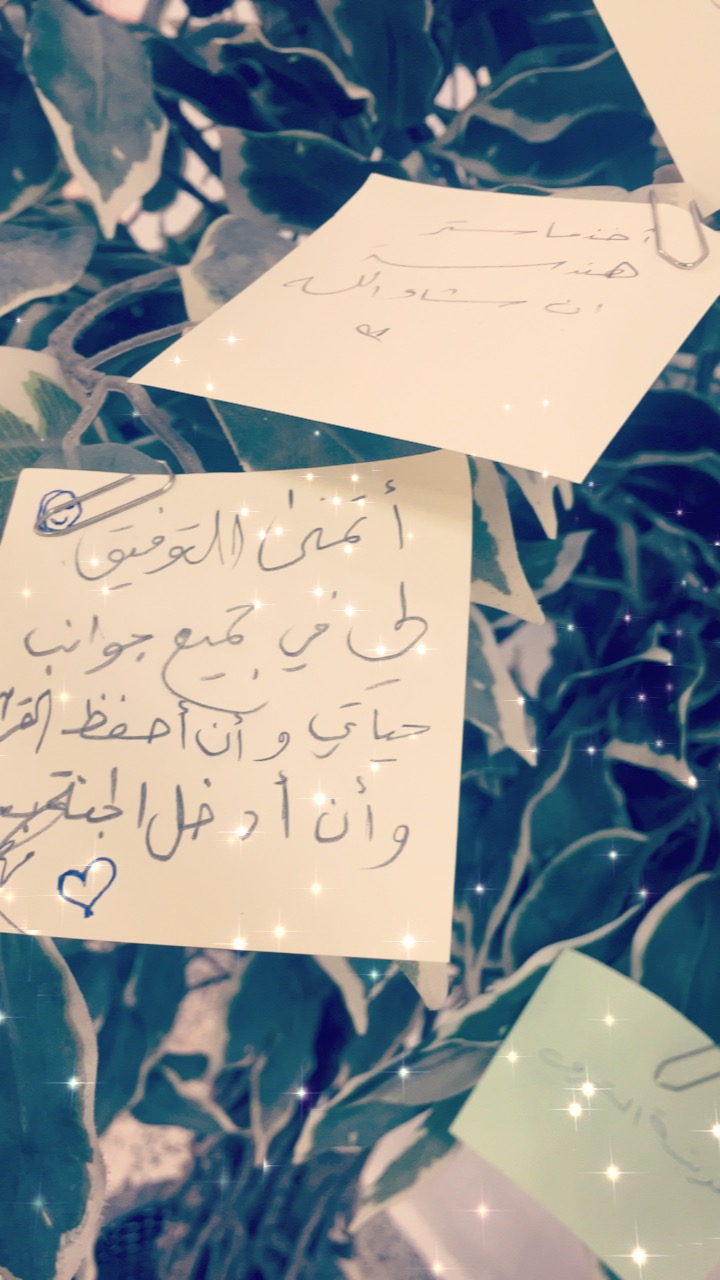 أخذ ماستر
هندسة
ان شاء الله
أتمنى التوفيق
لي في جميع جوانب
حياتي وأن أحفظ القرآ
وأن أدخل الجنة